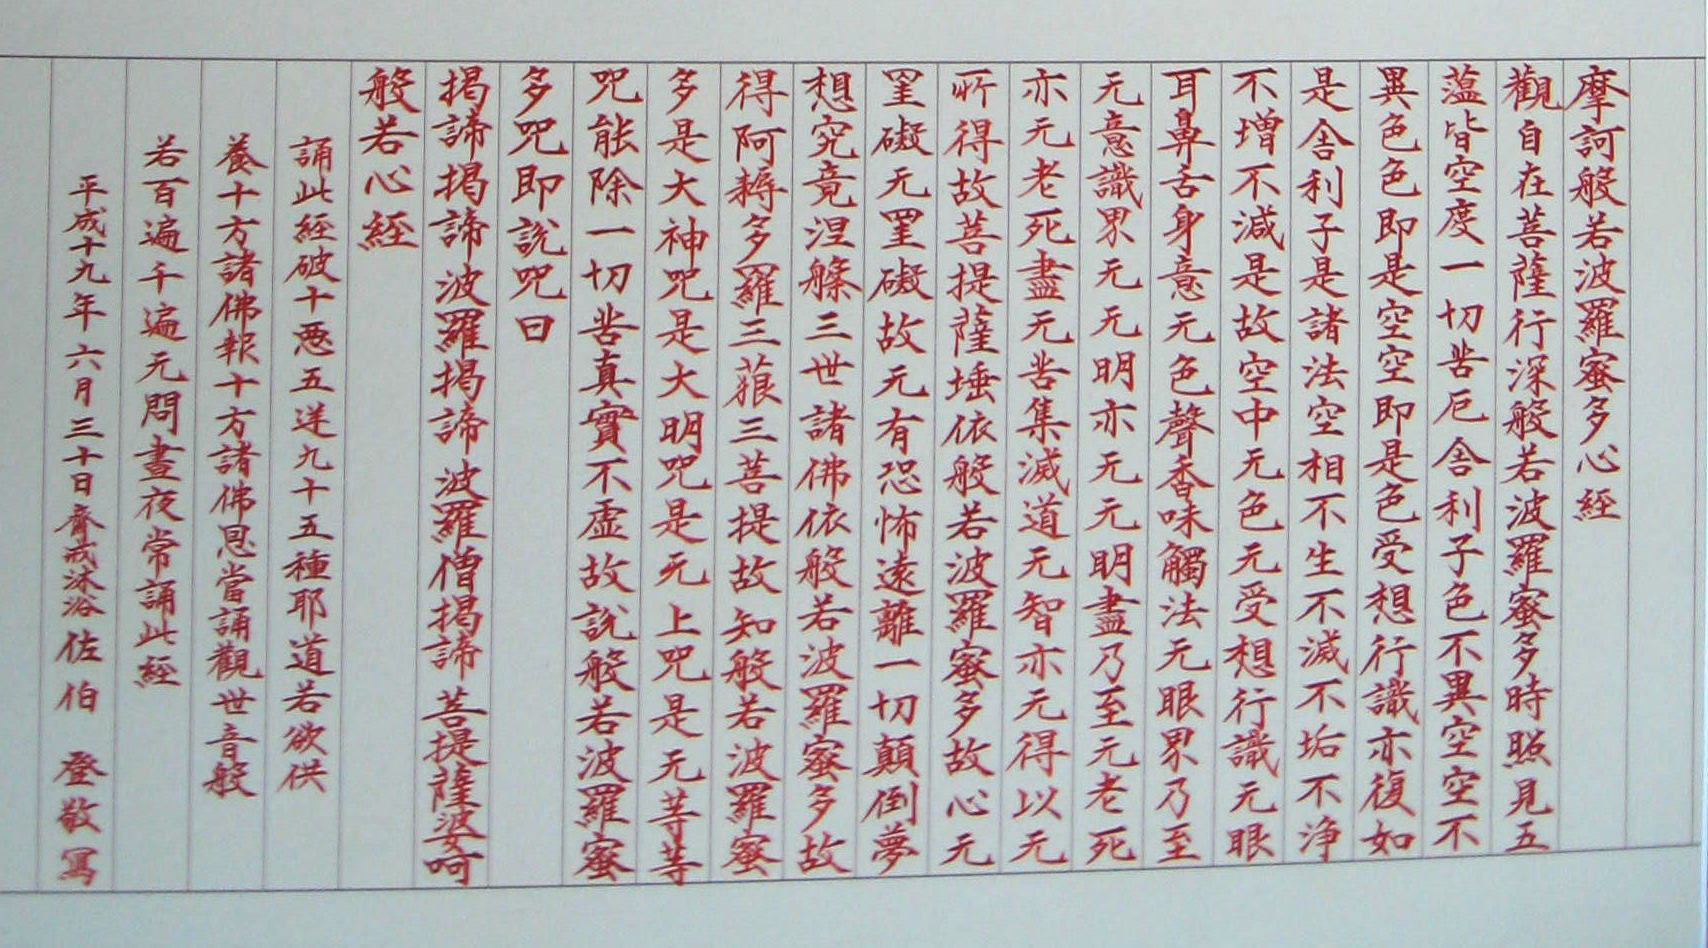 摩訶般若波羅蜜多心経
觀自在菩薩行深般若波羅蜜多時照見五
薀皆空度一切苦厄舎利子色不異空空不
異色色即是空空即是色受想行識亦復如
是舎利子是諸法空相不生不滅不垢不浄
不増不減是故空中无色无受想行識无眼
耳鼻舌身意无色聲香味觸法无眼界乃至
无意識界无无明亦无无明盡乃至无老死
亦无老死盡无苦集滅道无智亦无得以无
所得故菩提薩埵依般若波羅蜜多故心无
罣礙无罣礙故无有恐怖遠離一切顛倒夢
想究竟涅槃三世諸佛依般若波羅蜜多故
得阿耨多羅三藐三菩提故知般若波羅蜜
多是大神咒是大明咒是无上咒是无等等
咒能除一切苦真實不虚故説般若波羅蜜
多咒即説咒曰
揭諦揭諦波羅揭諦 波羅僧揭諦 菩提薩婆呵
般若心経
誦此経破十悪五逆九十五種耶道若欲供
養十方諸佛報十方諸佛恩當誦觀世音般
若百遍千遍无問晝夜常誦此経
平成十九年六月三十日齋戒沐浴佐伯 登敬寫